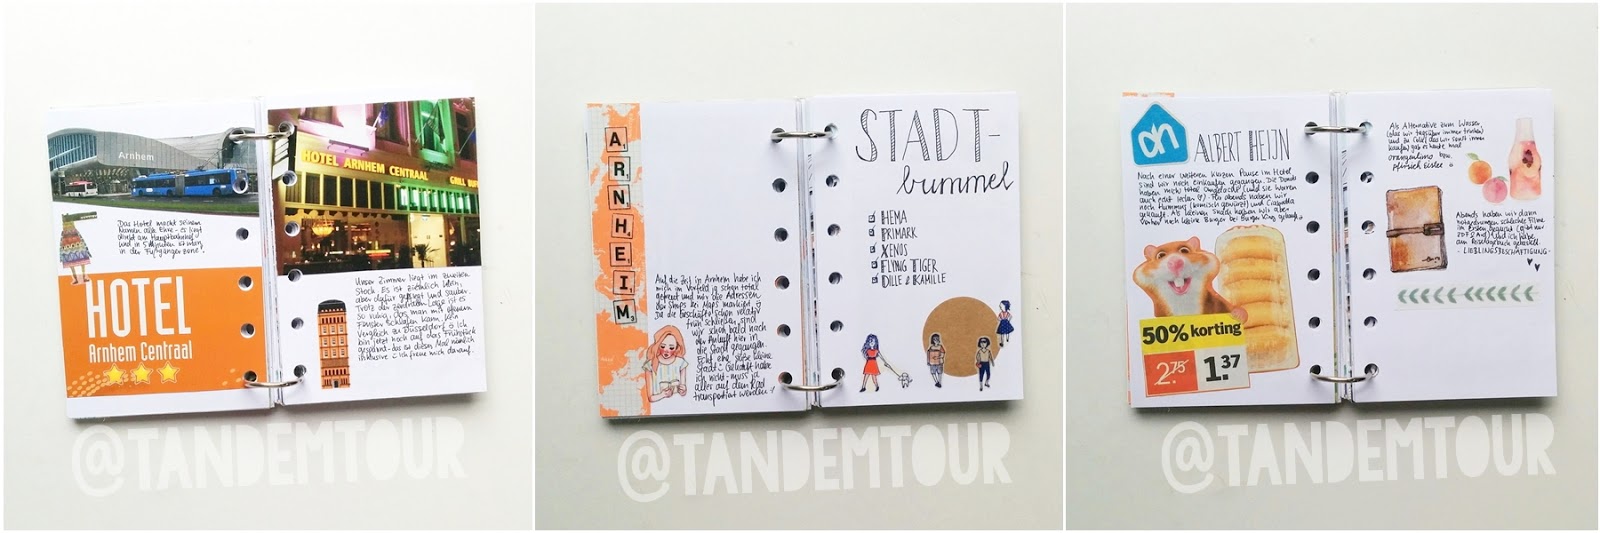 Arnhem
Das Hotel macht seinem
Namen alle Ehre - es liegt
direkt am Hauptbahnhof
und in 5 Minuten ist man
in der Fußgängerzone!
HOTEL
Arnhem Centraal
HOTEL ARNHEM CENTRAAL GRILL
Unser Zimmer liegt im zweiten
Stock. Es ist ziemlich klein,
aber dafür gepflegt und sauber.
Trotz der zentralen Lage ist es
so ruhig, dass man mit offenem
Fenster schlafen kann. Kein
Vergleich zu Düsseldorf! Ich
bin jetzt noch auf das Frühstück
gespannt - das ist dieses Mal nämlich
inklusive. Ich freue mich darauf.
@TANDEMTOUR
ARNHEIM
Auf die Zeit in Arnheim habe ich
mich im Vorfeld ja schon total
gefreut und mir die Adressen
der Shops bei Maps markiert.
Da die Geschäfte schon relativ
früh schließen, sind
wir schon bald nach
der Ankunft hier in
die Stadt gegangen.
Echt eine süße kleine
Stadt! Gekauft habe
ich nicht - muss ja
alles auf dem Rad
transportiert werden!
STADT-
bummel
HEMA
PRIMARK
XENOS
FLYING TIGER
DILLE & KAMILLE
@TANDEMTOUR
ah
ALBERT HEIJN
Nach einer weiteren kurzen Pause im Hotel
sind wir noch einkaufen gegangen. Die Donuts
haben mich total angelacht (und sie waren
auch echt lecker). Für abends haben wir
noch Hummus (komisch gewürzt) und Ciabatta
gekauft. Als kleinen Snack haben wir aber
vorher noch kleine Burger bei Burger King gekauft.
50% korting
2.75
1.37
Als Alternative zum Wasser
(das wir tagsüber immer trinken)
und zu Cola (das wir sonst immer
kaufen) gab es heute mal
Orangenlimo bzw.
Pfirsich Eistee
Abends haben wir dann
noch schlechte Filme
im Ersten geguckt (gibt nur
ZDF & ARD) und ich habe
am Reisetagebuch gebastelt.
- LIEBLINGSBESCHÄFTIGUNG -
@TANDEMTOUR